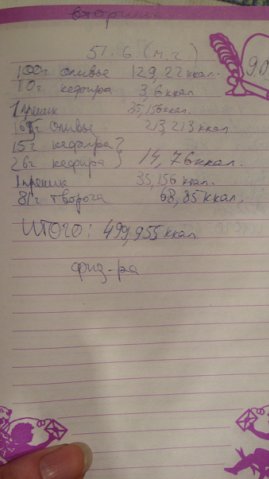 вторник
51.6 (м.г)
100г оливье 129,22 ккал.
10г кефира 3,6 ккал
1 пряник 35,156 ккал.
165г оливье 213,213 ккал
15г кефира?
26г кефира} 14,76 ккал.
1 пряник 35,156 ккал.
81г творога 68,85 ккал.
ИТОГО: 499,955 ккал
физ-ра
90